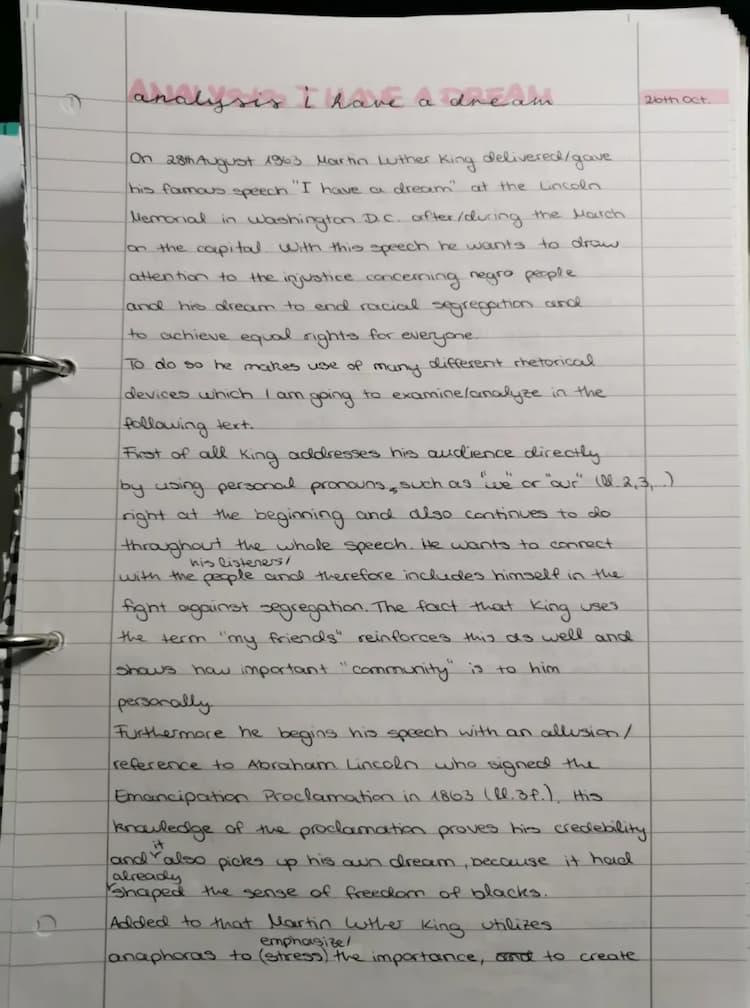 ANALYSIS I HAVE A DREAM
analysis i have a dream
26th Oct.
On 28th August 1963 Martin Luther King delivered/gave
his famous speech "I have a dream" at the Lincoln
Memorial in Washington D.C. after/during the March
on the capital. With this speech he wants to draw
attention to the injustice concerning negro people
and his dream to end racial segregation and
to achieve equal rights for everyone.
To do so he makes use of many different rhetorical
devices which I am going to examine/analyze in the
following text.
First of all King addresses his audience directly
by using personal pronouns, such as "we" or "our" (ll. 2,3,..)
right at the beginning and also continues to do
throughout the whole speech. He wants to connect
his listeners/
with the people and therefore includes himself in the
fight against segregation. The fact that King uses
the term "my friends" reinforces this as well and
shows how important "community" is to him
personally
Furthermore he begins his speech with an allusion/
reference to Abraham Lincoln who signed the
Emancipation Proclamation in 1863 (ll. 3f.). His
knowledge of the proclamation proves his credebility
and it also picks up his own dream, because it had
already
shaped the sense of freedom of blacks.
Added to that Martin Luther King utilizes
emphasize/
anaphoras to (stress) the importance, and to create